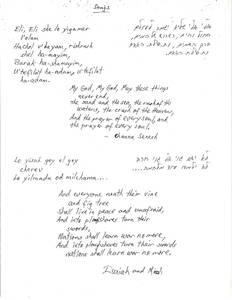 Songs
Eli, Eli she lo yigamer
l'olam
Hachol v'hayam, rishrush
shel ha-mayim,
Barak ha-shamayim,
U'tefillat ha-adam, u'tefillat
ha-adam.
My God, My God, May these things
never end,
the sand and the sea, the rush of the
waters, the crash of the heavens,
And the prayer of every soul, and
the prayer of every soul.
- Channa Senesh
Lo yisa goy el goy
cherev
Lo yilmedu od milchama...
And everyone neath their vine
and fig tree
Shall live in peace and unafraid,
And into plowshares turn their
swords,
Nations shall learn war no more,
And into plowshares turn their swords
nations shall learn war no more.
Isaiah and Micah